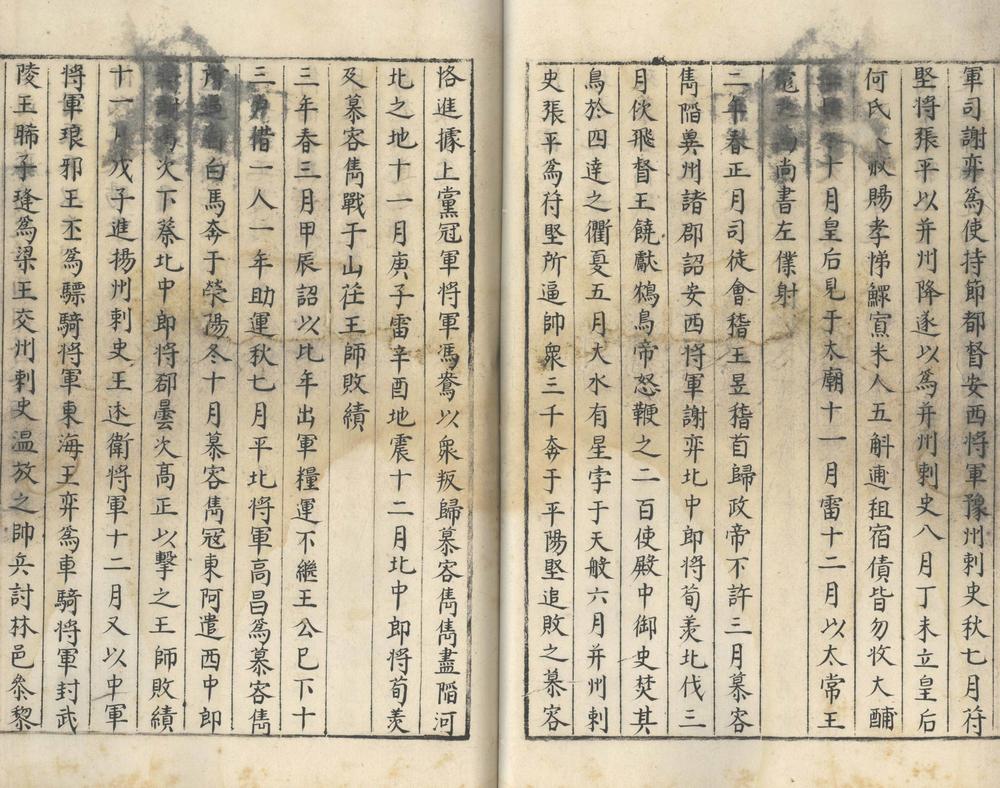 軍司謝弈爲使持節都督安西將軍豫州刺史秋七月苻
堅將張平以并州降遂以爲并州刺史八月丁未立皇后
何氏大赦賜孝悌鰥寡米人五斛逋租宿債皆勿收大酺
十月皇后見于太廟十一月雷十二月以太常王
尚書左僕射
二年春正月司徒會稽王昱稽首歸政帝不許三月慕容
儁陷冀州諸郡詔安西將軍謝弈北中郎將荀羨北伐三
月佽飛督王饒獻鴆鳥帝怒鞭之二百使殿中御史焚其
鳥於四達之衢夏五月大水有星孛于天船六月并州刺
史張平爲苻堅所逼帥衆三千奔于平陽堅追敗之慕容
恪進據上黨冠軍將軍馮鴦以衆叛歸慕容儁儁盡陷河
北之地十一月庚子雷辛酉地震十二月北中郎將荀羨
及慕容儁戰于山茌王師敗績
三年春三月甲辰詔以比年出軍糧運不繼王公已下十
三戶借一人一年助運秋七月平北將軍高昌爲慕容儁
所逼自白馬奔于滎陽冬十月慕容儁寇東阿遣西中郎
將謝萬次下蔡北中郎將郗曇次高正以擊之王師敗績
十一月戊子進揚州刺史王述衛將軍十二月又以中軍
將軍琅邪王丕爲驃騎將軍東海王弈爲車騎將軍封武
陵王晞子㻴爲梁王交州刺史温放之帥兵討林邑參黎